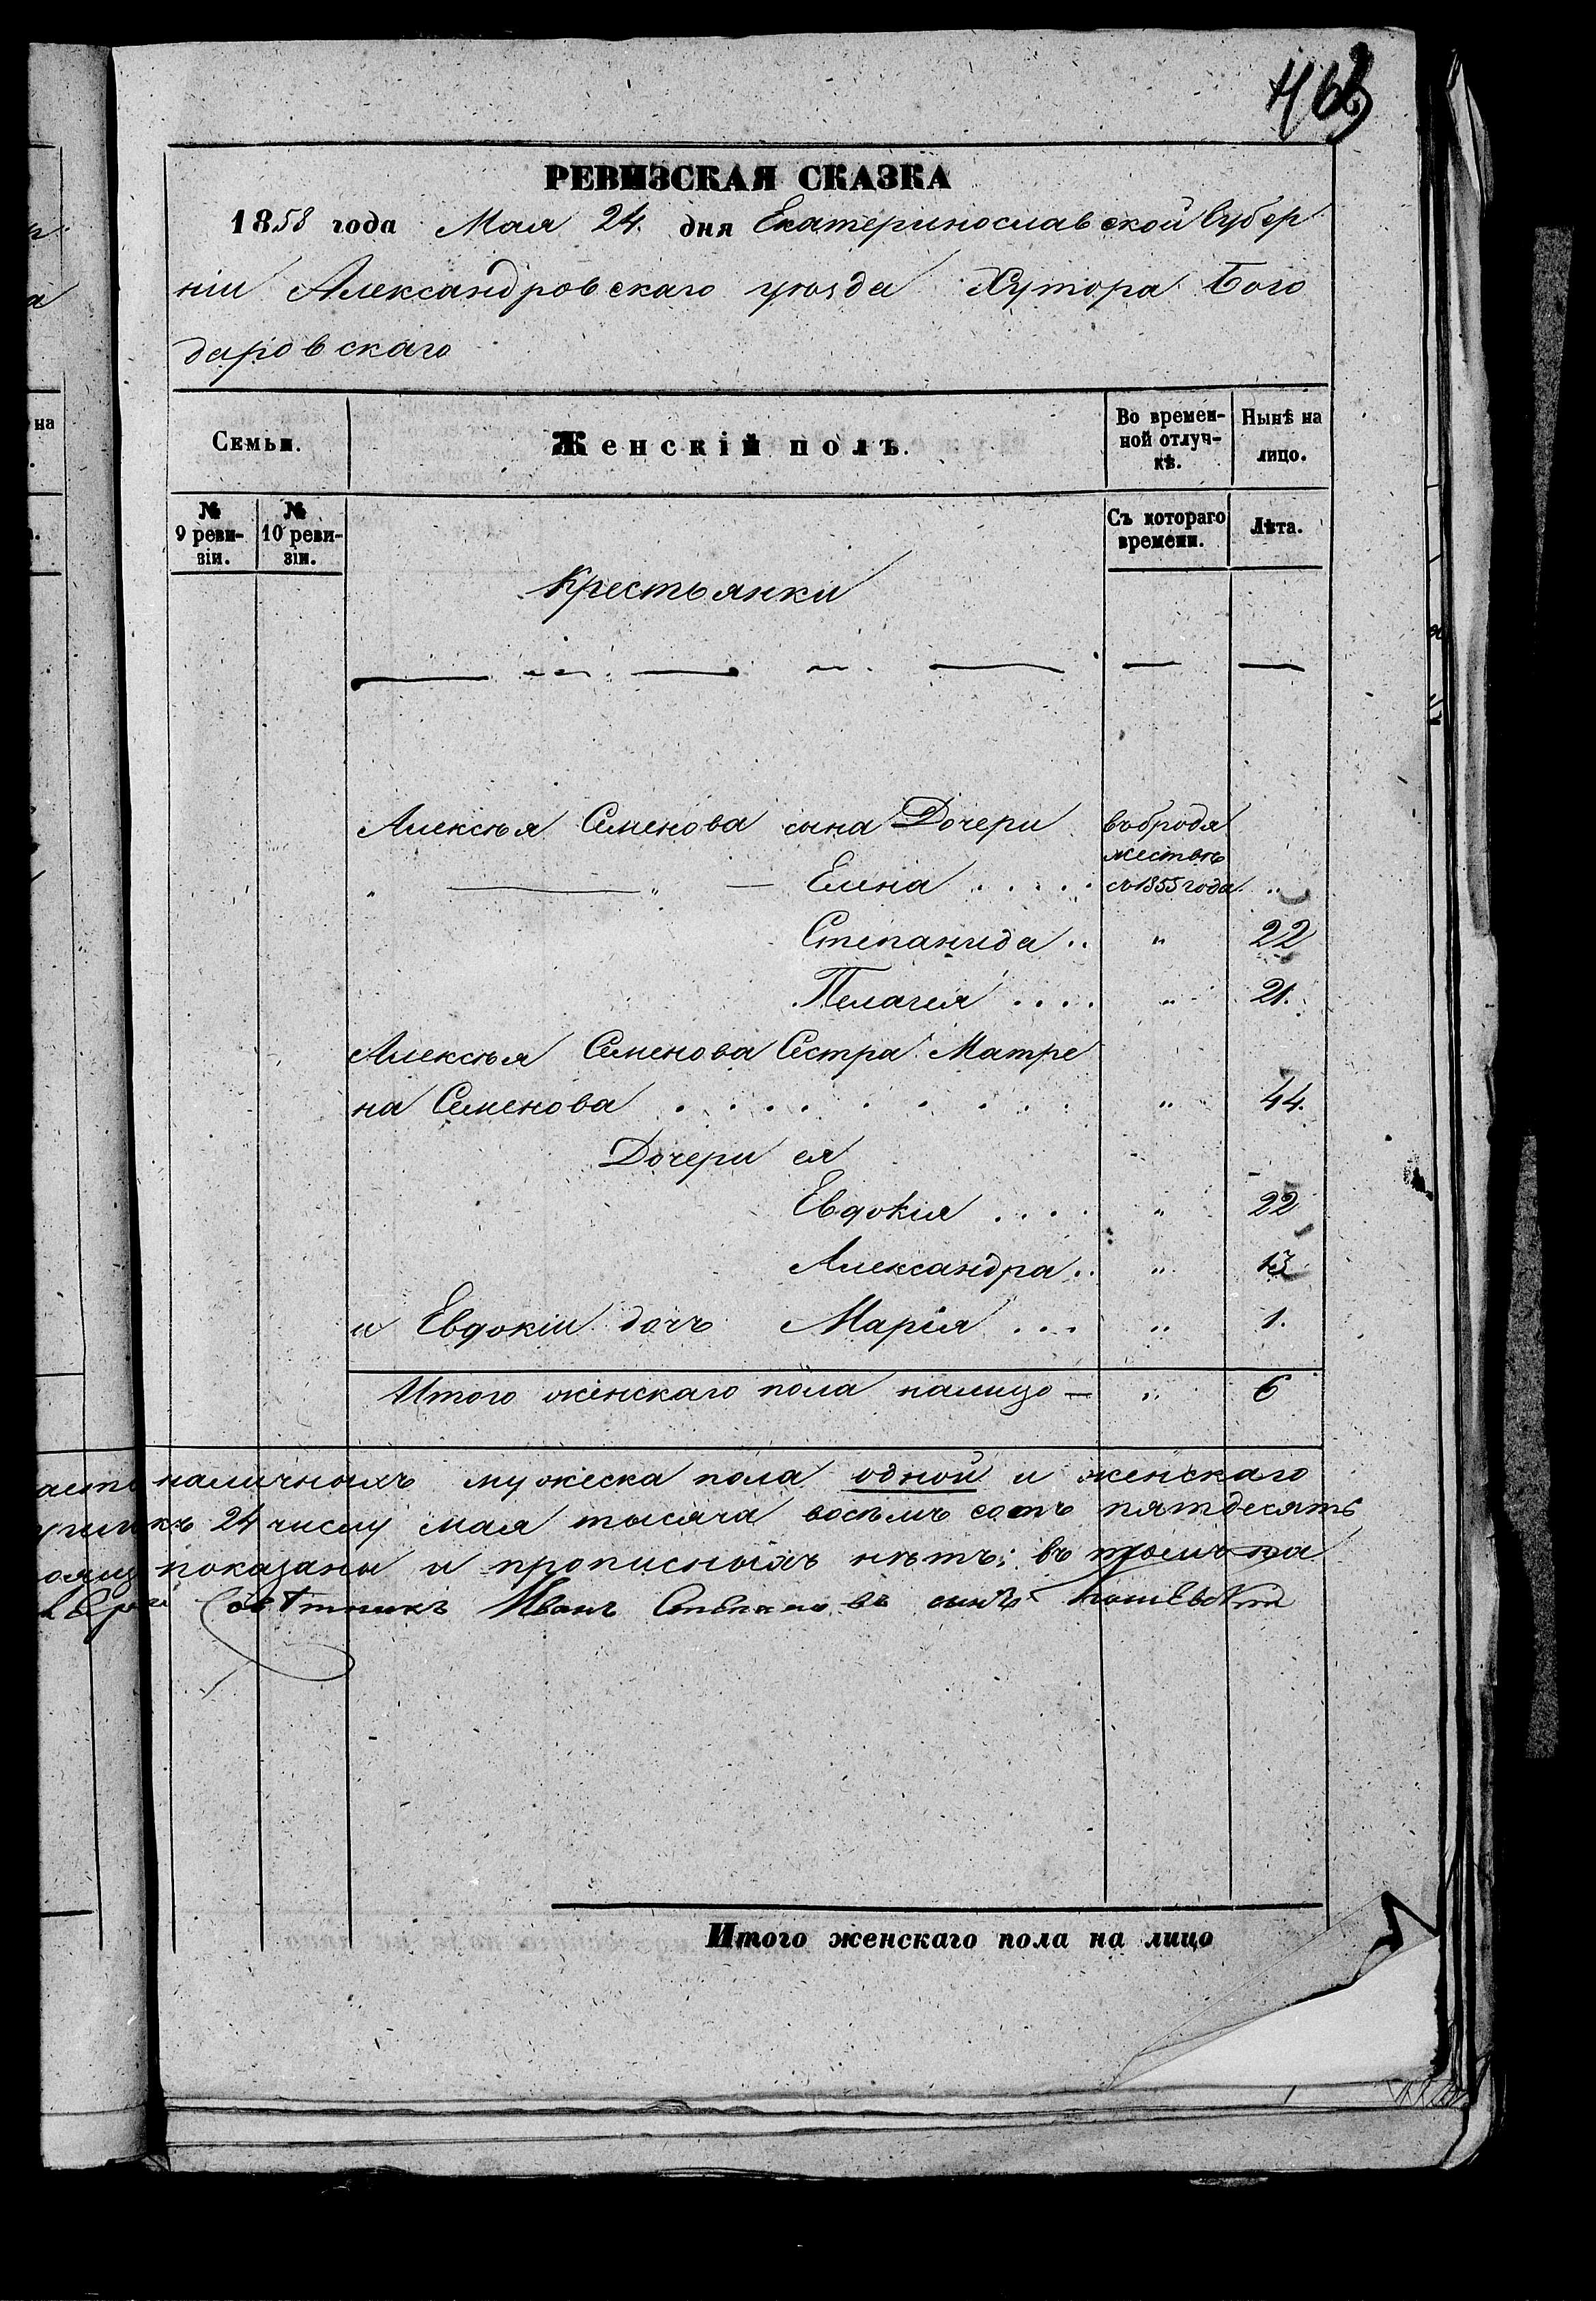 463
РЕВИЗСКАЯ СКАЗКА
1858 года Мая 24. дня Екатеринославской Губер
ніи Александровскаго уѣзда Хутора Бого
даровскаго
на
Семьи.
Женскій полъ.
Во времен-
ной отлуч-
кѣ.
Нынѣ на
лицо.
№
9 реви-
зіи.
№
10 реви-
зіи.
Съ котораго
времени.
Лѣта.
Крестьянки
Алексѣя Семенова сына Дочери въ бродя
жествѣ
" — " — Елена . . . . . съ 1855 года. "
Степанида . . " 22
Пелагея . . . . " 21.
Алексѣя Семенова Сестра Матре
на Семенова . . . . . . . . . " 44.
Дочери ея
Евдокія . . . . " 22
Александра . . " 13
и Евдокіи дочь Марія . . . " 1.
Итого женскаго пола налицо — " 6
наличныхъ мужеска пола одной и женскаго
къ 24 числу мая тысяча восемь сотъ пятдесятъ
показаны и прописныхъ нѣтъ; въ томъ на
Совѣтникъ Иванъ Степановъ сынъ
Итого женскаго пола на лицо